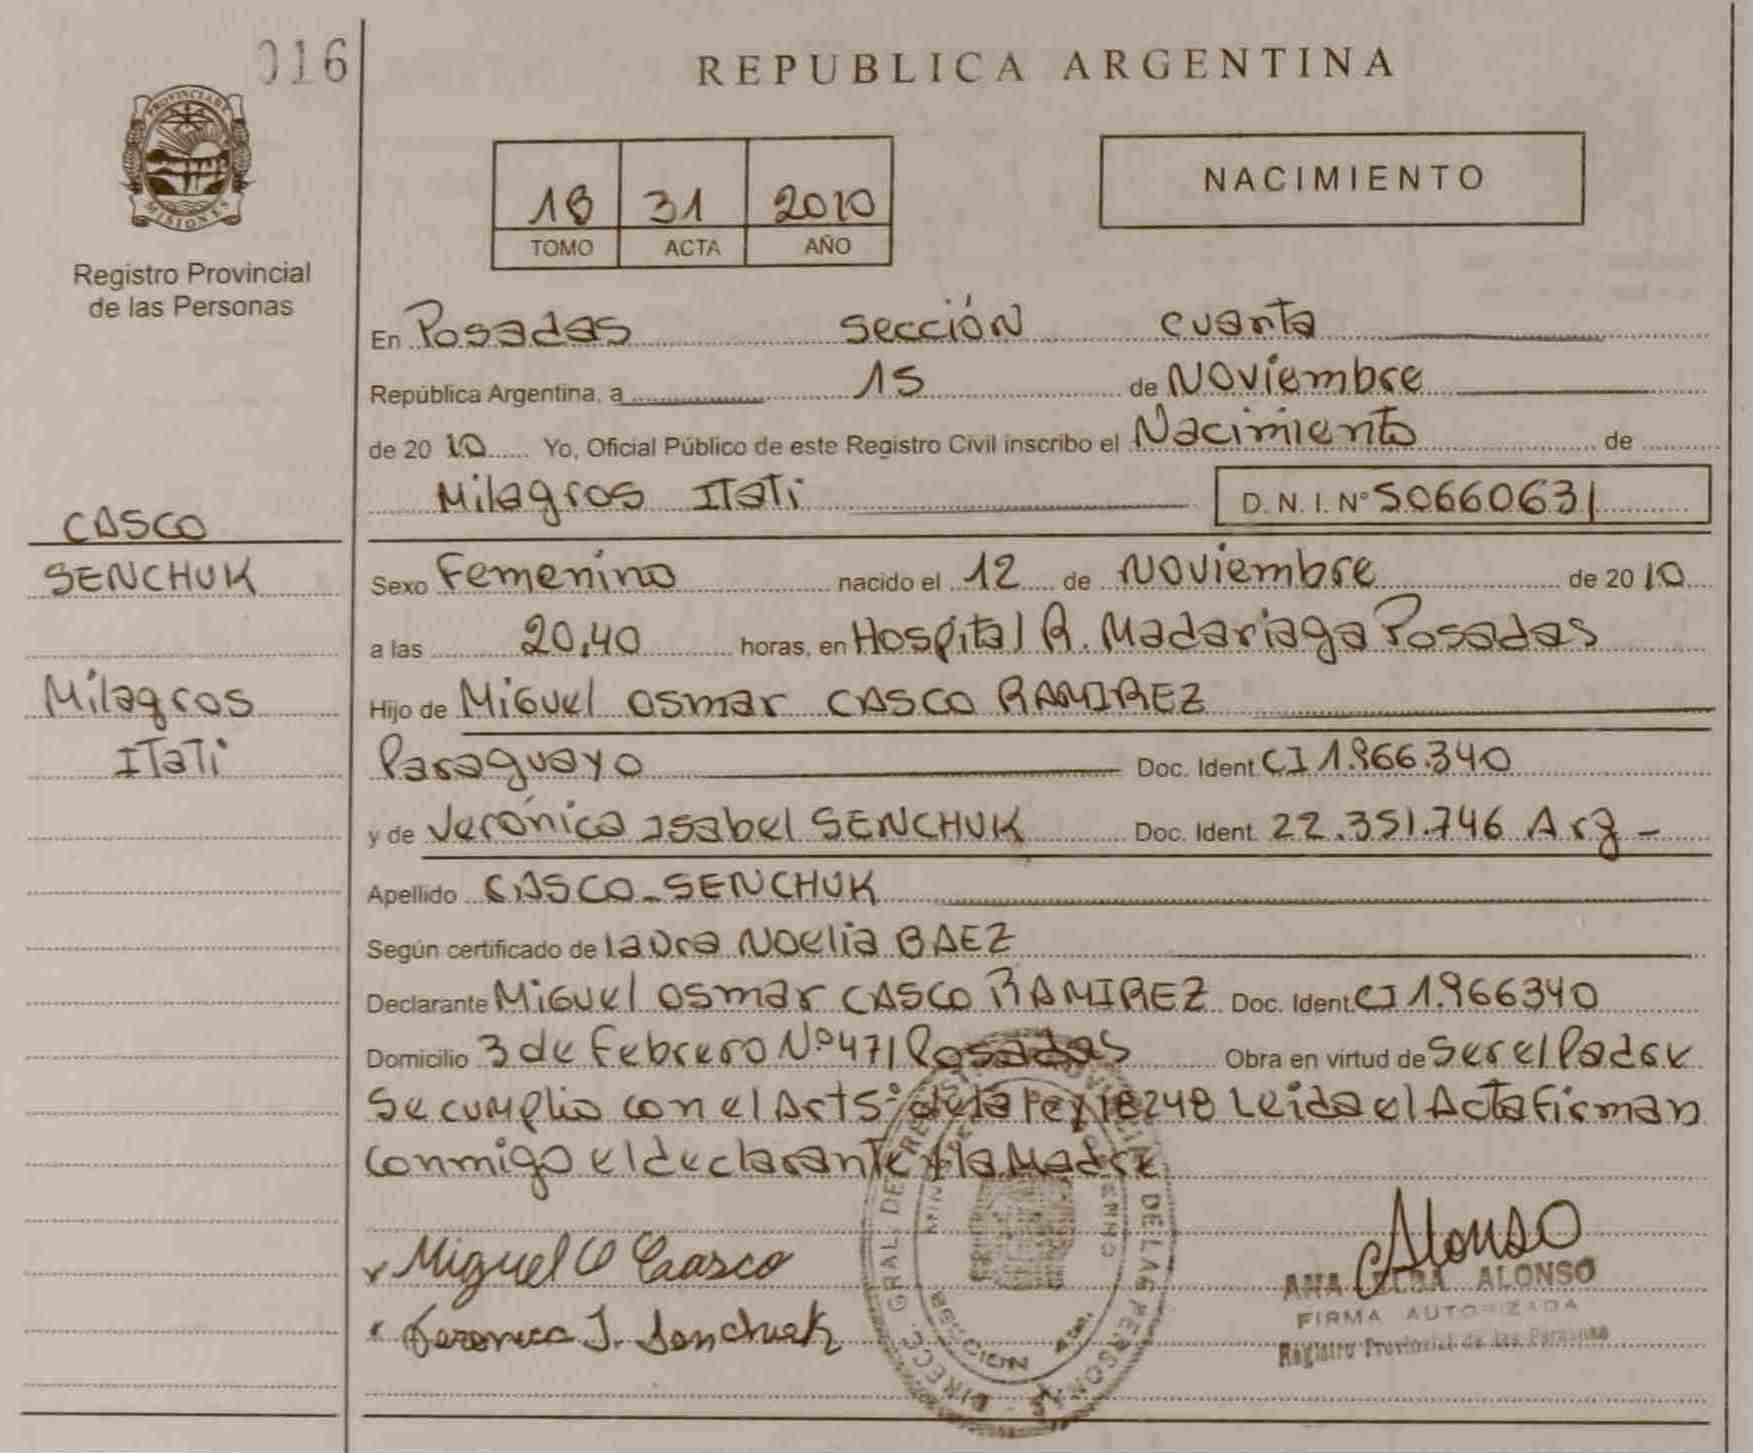 016
REPUBLICA ARGENTINA
PROVINCIA DE
MISIONES
Registro Provincial
de las Personas
18 31 2010
TOMO ACTA AÑO
NACIMIENTO
CASCO
SENCHUK
Milagros
Itati
En Posadas sección cuarta
República Argentina, a 15 de Noviembre
de 20 10 Yo, Oficial Público de este Registro Civil inscribo el Nacimiento de
Milagros Itati D. N. I. Nº 50660631
Sexo Femenino nacido el 12 de Noviembre de 20 10
a las 20,40 horas, en Hospital R. Madariaga Posadas
Hijo de Miguel Osmar CASCO RAMIREZ
Paraguayo Doc. Ident. CI 1.966.340
y de Verónica Isabel SENCHUK Doc. Ident. 22.351.746 Arg -
Apellido CASCO - SENCHUK
Según certificado de Laura Noelia BAEZ
Declarante Miguel Osmar CASCO RAMIREZ Doc. Ident. CI 1.966340
Domicilio 3 de Febrero Nº 471 Posadas Obra en virtud de Ser el Padre
Se cumplio con el Art 5º de la Ley 18248 Leida el Acta Firman
conmigo el declarante y la Madre
Miguel O Casco
Veronica I. Senchuk
Alonso
ANA ALONSO
FIRMA AUTORIZADA
Registro Provincial de las Personas